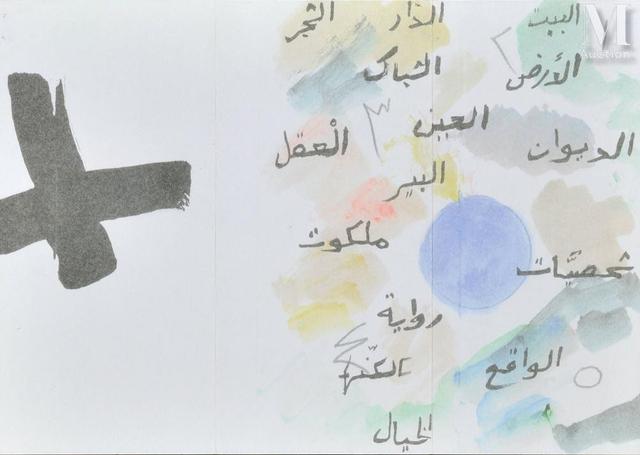 البيت الدار الشجر
الأرض الشباك
العين
الديوان العقل
البير
ملكوت
شخصيّات
رواية
الواقع
الخيال
M
Auction